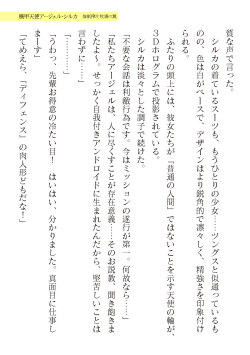 機甲天使アージェル・シルカ
質な声で言った。
　シルカの着ているスーツも、もうひとりの少女……ツングスと似通っているも
のの、色は白がベースで、デザインはより鋭角的で凛々しく、精強さを印象付け
られる。
　ふたりの頭上には、彼女たちが「普通の人間」ではないことを示す天使の輪が、
３Ｄホログラムで投影されている。
　シルカは淡々とした調子で続けた。
「不要な会話は利敵行為です　今はミッションの遂行が第一。何故なら……」
「私たちアージェルは、人に尽くすことが存在意義……そのお説教、聞き飽きま
したよ〜。せっかく自我付きアンドロイドに生まれたんだから、堅苦しいことは
言わずに……」
「…………」
「うわっ、先輩お得意の冷たい目！　はいはい、分かりました。真面目に仕事し
まーす」
「てめえら、「ディフェンス」の肉人形どもだな！」